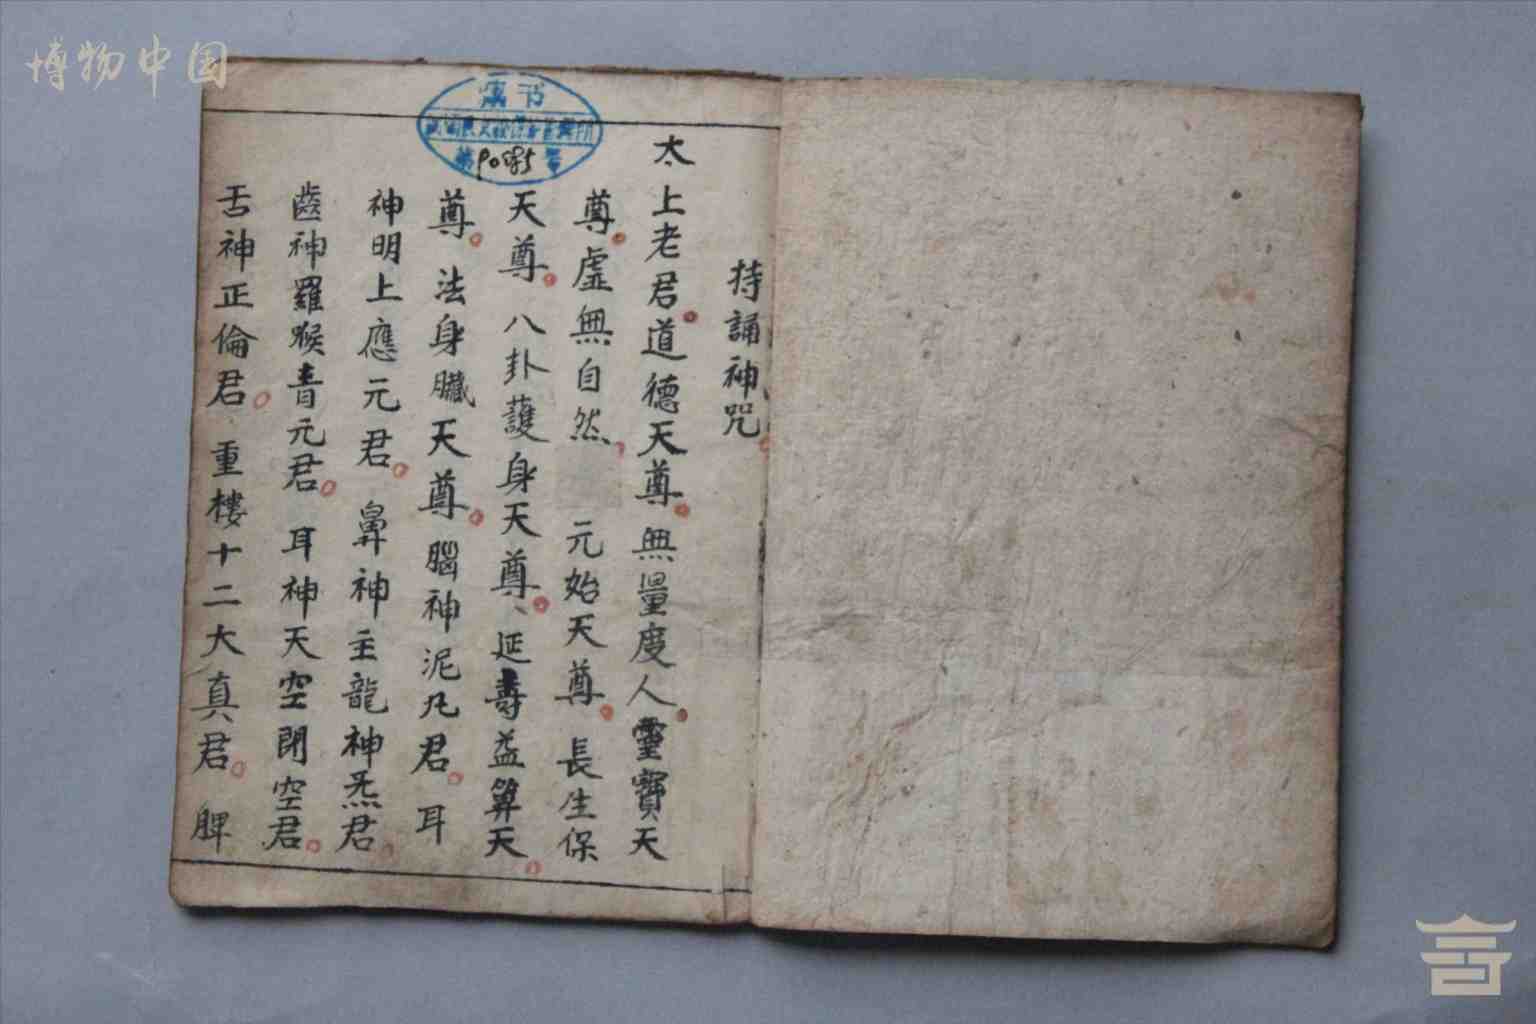 博物中国
持誦神咒
太上老君道德天尊無量度人靈寶天
尊虛無自然元始天尊長生保
天尊八卦護身天尊延壽益算天
尊法身臟天尊腦神泥凡君耳
神明上應元君鼻神主龍神炁君
齒神羅猴音元君耳神天空閉空君
舌神正倫君重樓十二大真君脾
书
第90595號